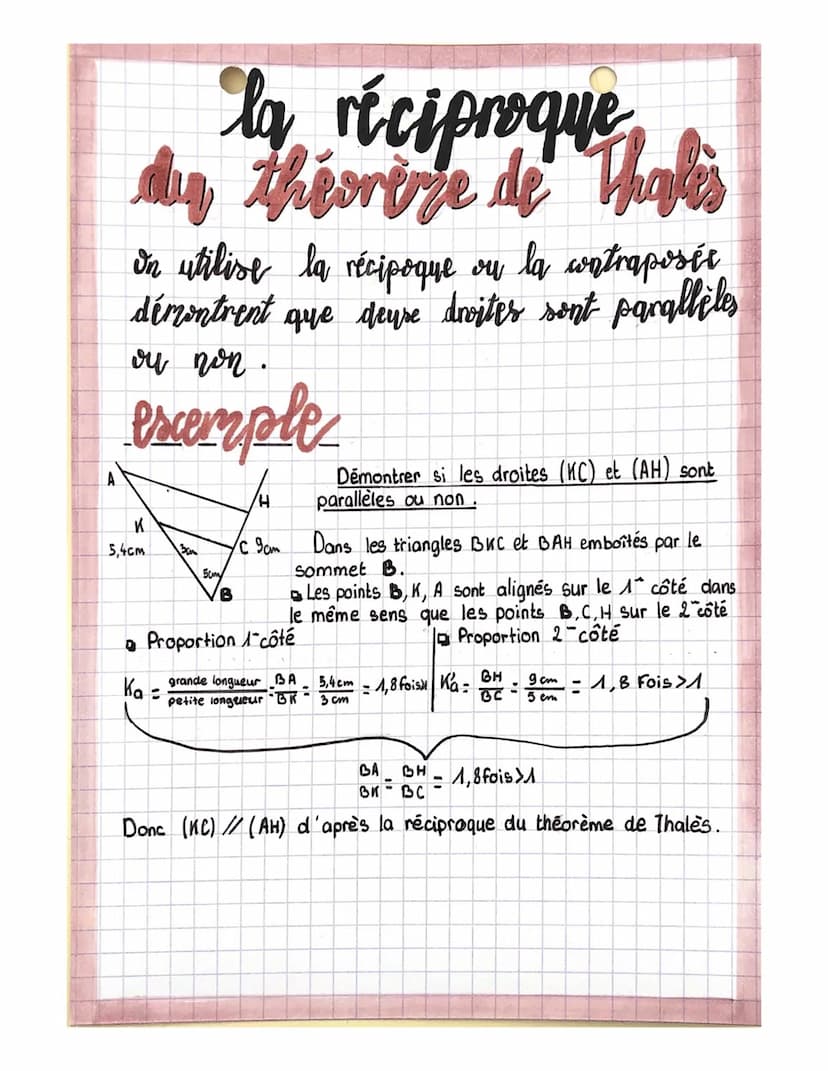 la réciproque
du théorème de Thalès
On utilise la récipoque ou la contraposée
démontrent que deuxe droites sont parallèles
ou non.
escemple
A
H
K
C
B
5,4cm
3cm
9cm
5cm
Démontrer si les droites (KC) et (AH) sont
parallèles ou non.
Dans les triangles BKC et BAH emboîtés par le
sommet B.
Les points B, K, A sont alignés sur le 1er côté dans
le même sens que les points B, C, H sur le 2e côté
Proportion 1er côté
Ka = grande longueur / petite longueur = BA / BK = 5,4cm / 3cm = 1,8 fois>1
Proportion 2e côté
K'a = BH / BC = 9cm / 5cm = 1,8 Fois>1
BA / BK = BH / BC = 1,8fois>1
Donc (KC) // (AH) d'après la réciproque du théorème de Thalès.